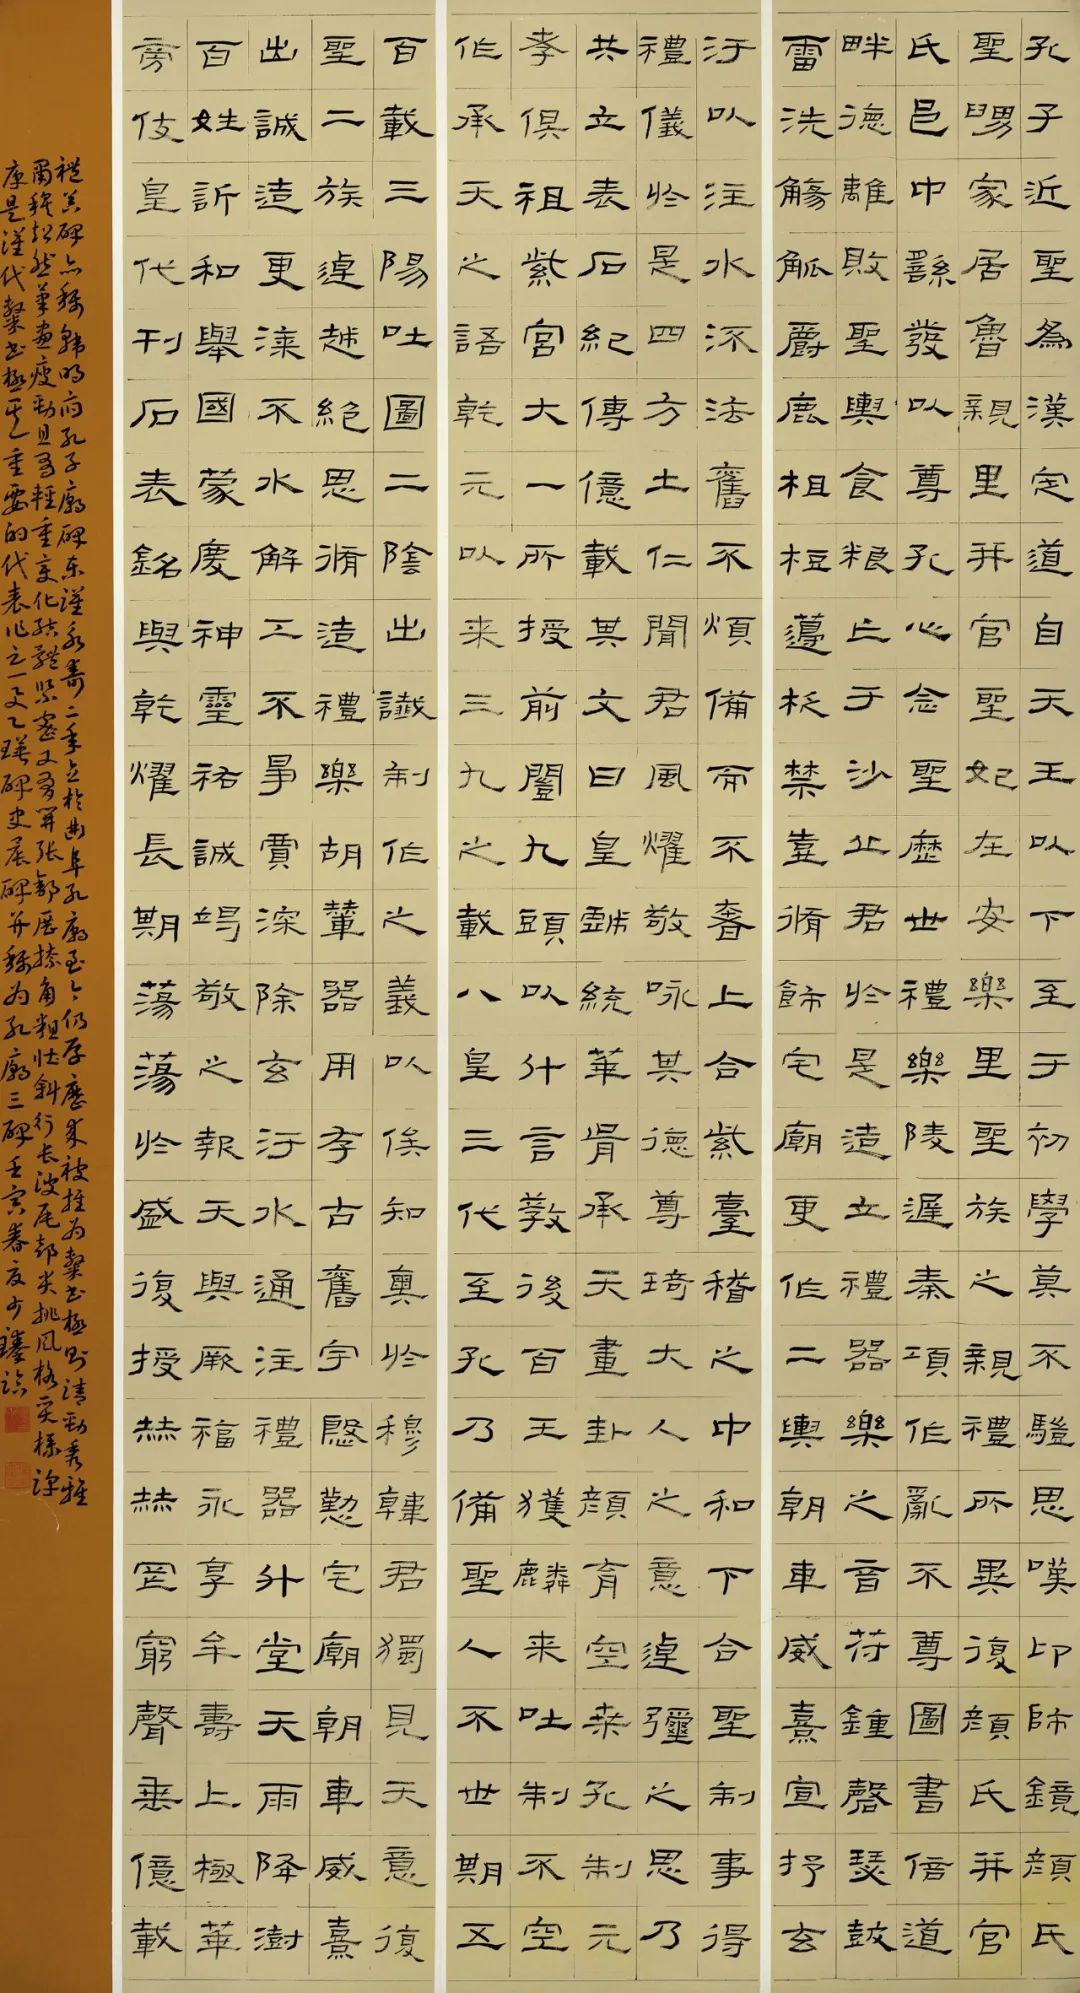 孔子近聖為漢定道自天王以下至于初學莫不驥思嘆卬師鏡顏氏
聖舅家居魯親里并官聖妃在安樂里聖族之親禮所異復顏氏并官
氏邑中繇發以尊孔心念聖歷世禮樂陵遲秦項作亂不尊圖書倍道
畔德離敗聖輿食糧亡于沙丘君於是造立禮器樂之音符鍾磬瑟鼓
雷洗觴觚爵鹿柤梪籩柉禁壺脩飾宅廟更作二輿朝車威熹宣抒玄
汙以注水流法舊不煩備而不奢上合紫臺稽之中和下合聖制事得
禮儀於是四方土仁聞君風燿敬咏其德尊琦大人之意逴彌之思乃
共立表石紀傳億載其文曰皇戲統華胥承天畫卦顏育空桑孔制元
孝俱祖紫宮大一所授前闓九頭以什言教後百王獲麟来吐制不空
作承天之語乾元以来三九之載八皇三代至孔乃備聖人不世期五
百載三陽吐圖二陰出讖制作之義以俟知奧於穆韓君獨見天意復
聖二族逴越絕思脩造禮樂胡輦器用存古舊宇慇懃宅廟朝車威熹
出誠造更漆不水解工不爭賈深除玄汙水通注禮器升堂天雨降澍
百姓訢和舉國蒙慶神靈祐誠竭敬之報天與厥福永享牟壽上極華
旁伎皇代刊石表銘與乾燿長期蕩蕩於盛復授赫赫罔窮聲垂億載
禮器碑亦稱韓明府孔子廟碑東漢永壽二年立於曲阜孔廟至今仍存歷來被推為隸書極則清勁秀雅
肅穆超然筆畫瘦勁且有輕重變化結體緊密又有開張舒展捺角粗壯斜行長波尾部尖挑風格更樸淳
是漢代隸書極其重要的代表作之一又乙瑛碑史晨碑并稱为孔廟三碑壬寅春臨